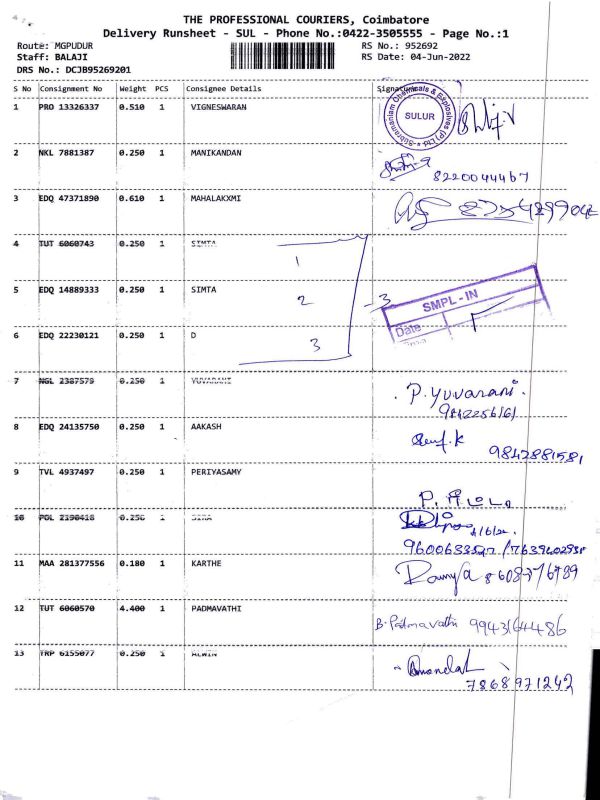 THE PROFESSIONAL COURIERS, Coimbatore
Delivery Runsheet - SUL - Phone No.:0422-3505555 - Page No.:1
Route: MGPUDUR RS No.: 952692
Staff: BALAJI RS Date: 04-Jun-2022
DRS No.: DCJB95269201
S No Consignment No Weight PCS Consignee Details Signature
1 PRO 13326337 0.510 1 VIGNESWARAN
Subramaniam Chemicals & Explosives (P) Ltd
SULUR
2 NKL 7881387 0.250 1 MANIKANDAN
8220044467
3 EDQ 47371890 0.610 1 MAHALAKXMI
4 TUT 6060743 0.250 1 SIMTA
1
5 EDQ 14889333 0.250 1 SIMTA
2 - 3
SMPL - IN
Date
6 EDQ 22230121 0.250 1 D
3
7 NGL 2387579 0.250 1 YUVARANI
P. Yuvarani.
9842256161
8 EDQ 24135750 0.250 1 AAKASH
9842881581
9 TVL 4937497 0.250 1 PERIYASAMY
10 POL 2190418 0.250 1
4/6/22.
11 MAA 281377556 0.180 1 KARTHE
Ramya 8608376789
12 TUT 6060570 4.400 1 PADMAVATHI
B. Padmavathi 9943164486
13 TRP 6155077 0.250 1 ALWIN
7868971242